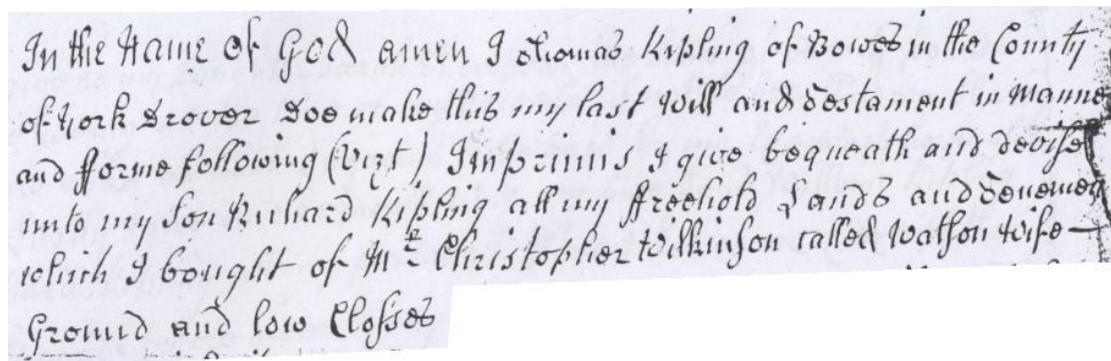 In the Name Of God amen I Thomas Kipling of Bowes in the County
of York Drover Doe make this my last Will and Testament in Manne
and fforme following (Vizt) Imprimis I give bequeath and devise
unto my Son Richard Kipling all my ffreehold Lands and Tenemen
which I bought of Mr Christopher Wilkinson called Watson Wife
Ground and low Closses